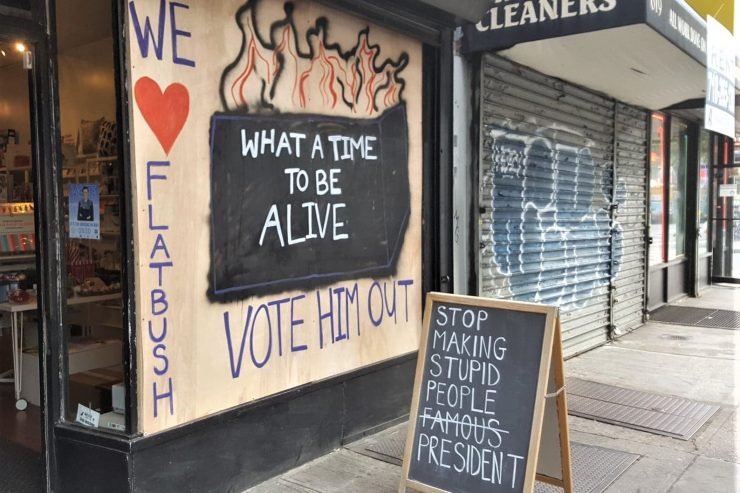 WE
♥
FLATBUSH
WHAT A TIME
TO BE
ALIVE
VOTE HIM OUT
CLEANERS
STOP
MAKING
STUPID
PEOPLE
FAMOUS
PRESIDENT